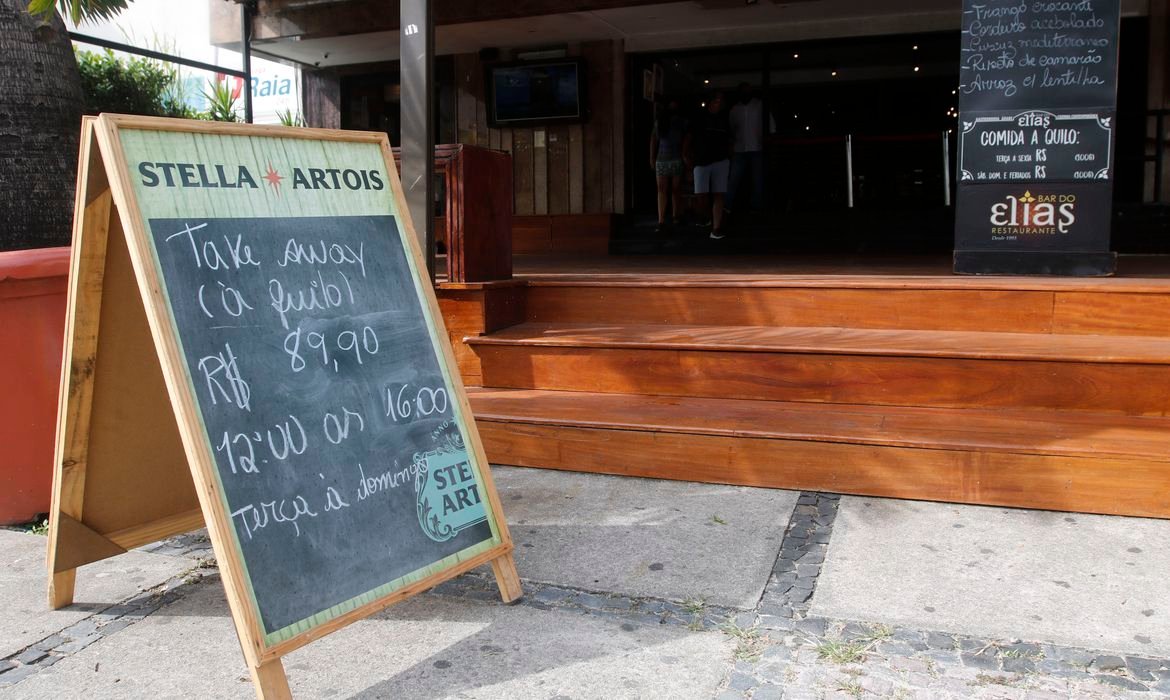 STELLA ARTOIS
Take away
(à quilo)
R$ 89,90
12:00 as 16:00
Terça à domingo
ANNO
STE
ART
Raia
Frango crocante
Cordeiro acebolado
Cuscuz mediterraneo
Risoto de camarão
Arroz c/ lentilha
elias
COMIDA A QUILO:
TERÇA A SEXTA R$ (100G)
SÁB. DOM. E FERIADOS R$ (100G)
BAR DO
elias
RESTAURANTE
Desde 1993